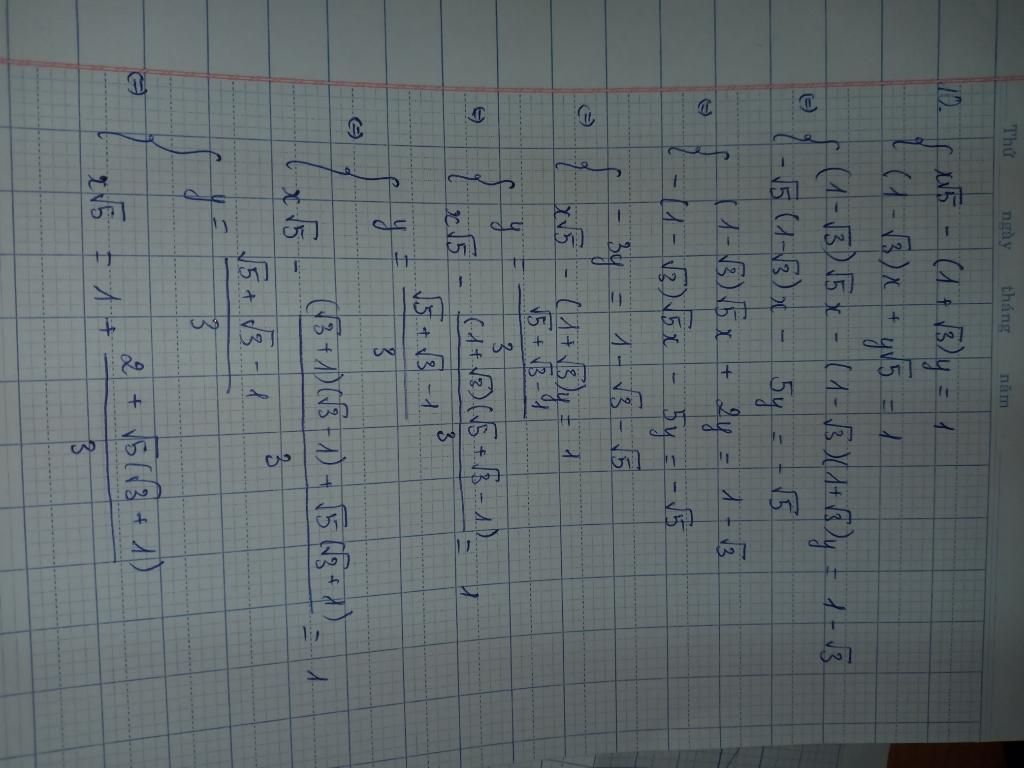 Thứ ngày tháng năm
12. { x√5 - (1 + √3)y = 1
(1 - √3)x + y√5 = 1
⇔ { (1 - √3)√5x - (1 - √3)(1+√3)y = 1 - √3
-√5(1-√3)x - 5y = -√5
⇔ { (1-√3)√5x + 2y = 1 - √3
- (1 - √3)√5x - 5y = -√5
⇔ { - 3y = 1 - √3 - √5
x√5 - (1+√3)y = 1
⇔ { y = (√5 + √3 - 1)/3
x√5 - (1+√3)(√5 + √3 - 1)/3 = 1
⇔ { y = (√5 + √3 - 1)/3
x√5 - ((√3+1)(√3-1) + √5(√3+1))/3 = 1
⇔ { y = (√5 + √3 - 1)/3
x√5 = 1 + (2 + √5(√3 + 1))/3